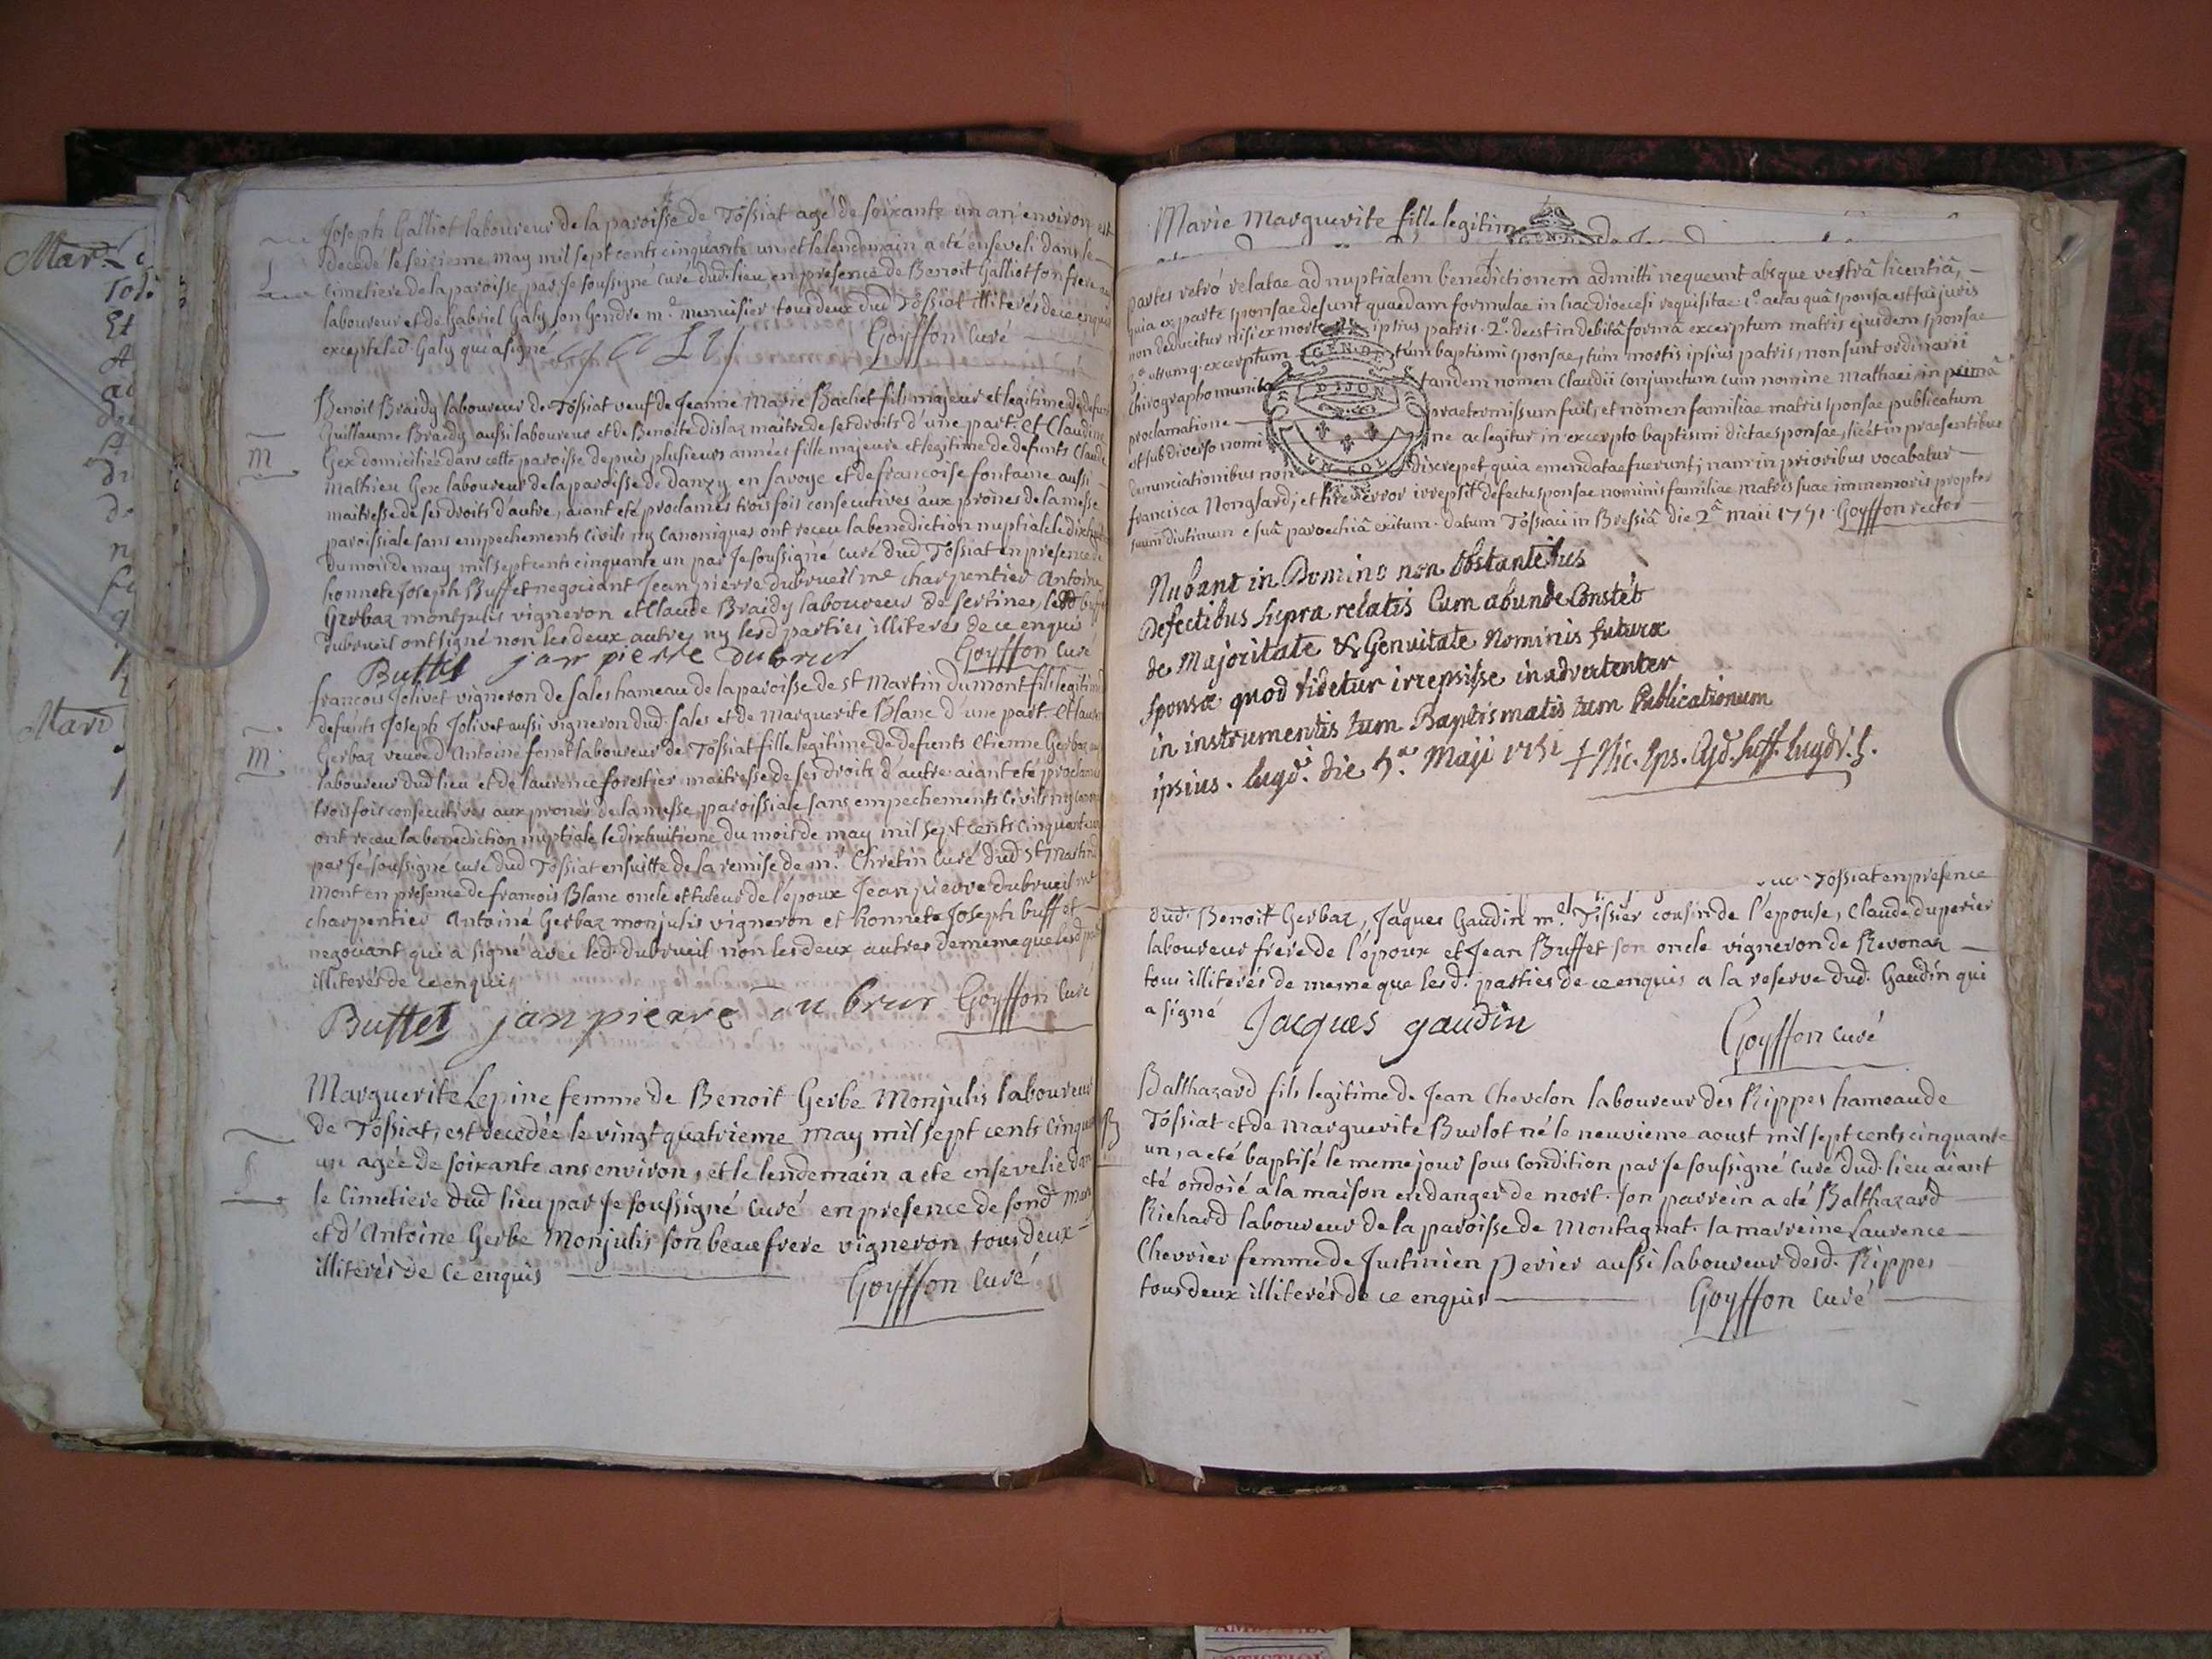 Joseph Galliot laboureur de la paroisse de Tossiat agé de soixante un an environ est
decedé le seizieme may mil sept cents cinquante un, et le lendemain a eté enseveli dans le
cimetiere de la paroisse, par Je soussigné curé dud. lieu, en presence de Benoit Galliot son frere
laboureur et de Gabriel Galy son Gendre me. menuisier tous deux dud Tossiat illiterés de ce enquis
excepté led. Galy qui a signé
Goyffon Curé
Benoit Braidy laboureur de Tossiat veuf de Jeanne Marie Bachet fils majeur et legitime de defunt
Guillaume Braidy aussi laboureur et de Benoite dislaz maitre de ses droits d'une part. Et Claudine
M
Gex domiciliée dans cette paroisse depuis plusieurs années fille majeure et legitime de defunts Claude
Mathieu Gex laboureur de la paroisse de danzy en savoye et de francoise fontaine aussi
maitresse de ses droits d'autre, aiant eté proclamés trois fois consecutives aux prones de la messe
paroissiale sans empechements civils ny Canoniques ont receu la benediction nuptiale le
du mois de may mil sept cents cinquante un par Je soussigné curé dud Tossiat en presence de
honnete Joseph Buffet negociant Jean pierre dubrueil me charpentier Antoine
Gerbaz monjulis vigneron et Claude Braidy laboureur de sertines, lesd
dubrueil ont signé non les deux autres ny lesd parties illiteres de ce enquis
Buffet jan pierre dubrur Goyffon Curé
francois Jolivet vigneron de sales hameau de la paroisse de St Martin dumont fils legitime
defunts Joseph Jolivet aussi vigneron dud. sales et de Marguerite Blanc d'une part. Et
M
Gerbaz veuve d'Antoine fenet laboureur de Tossiat fille legitime de defunts Etienne Gerbaz
laboureur dud lieu et de laurence forestier maitresse de ses droits d'autre aiant eté proclamés
trois fois consecutives aux prones de la messe paroissiale sans empechements civils ny
ont receu la benediction nuptiale le dixhuitieme du mois de may mil sept cents cinquante un
par Je soussigné curé dud Tossiat ensuitte de la remise de mr. Chretin curé dud St Martin
Mont en presence de francois Blanc oncle et tuteur de l'époux Jean pierre dubrueil me
charpentier Antoine Gerbaz monjulis vigneron et honnete Joseph buffet
negociant qui a signé avec led. dubrueil non les deux autres de meme que lesd
illiterés de ce enquis
Buffet jan pierre du brur Goyffon Curé
Marguerite Lepine femme de Benoit Gerbe Monjulis laboureur
de Tossiat, est decedée le vingt quatrieme may mil sept cents cinquante
un agée de soixante ans environ, et le lendemain a eté ensevelie dans
le Cimetiere dud lieu par Je soussigné curé en presence de sond Mary
et d'Antoine Gerbe Monjulis son beau frere vigneron, tous deux
illiterés de Ce enquis
Goyffon Curé
Marie Marguerite fille legitime
partes retró relatae ad nuptialem benedictionem admitti nequeunt absque vestrâ licentiâ,
quia ex parte sponsae desunt quaedam formulae in hac dioecesi requisitae: 1.° aetas quâ sponsa est sui juris
non deducitur nisi ex morte ipsius patris. 2.° deest in debitâ formâ excerptum matris ejusdem sponsae
3.° utrumq. excerptum tùm baptismi sponsae, tùm mortis ipsius patris, non sunt ordinarii
chirographo munita tandem nomen Claudii conjunctum cum nomine Mathaei, in primâ
proclamatione praetermissum fuit, et nomen familiae matris sponsae publicatum
est sub diverso nomine ac legitur in excerpto baptismi dictae sponsae, licèt in praesentibus
denunciationibus non discrepet quia emendatae fuerunt; nam in prioribus vocabatur
francisca Nonglard; et hic error irrepsit defectu sponsae nominis familiae matris suae immemoris propter
suum diutinum e suâ paroechiâ exitum. datum Tossiaci in Bressiâ die 2.â maii 1751 Goyffon rector
GEN. DE
DIJON
Nubant in Domino non obstantibus
Defectibus supra relatis Cum abunde Constet
de Majoritate & Genuitate Nominis futuræ
sponsæ quod videtur irrepsisse inadvertenter
in instrumentis tum Baptismatis tum Publicationum
ipsius. Lugd. die 5.a Maji 1751 † Nic. Eps. Suff. Lugd.
Tossiat en presence
dud. Benoit Gerbaz, Jaques Gaudin me. Tissier cousin de l'epouse, Claude duperier
laboureur frere de l'époux et Jean Buffet son oncle vigneron de Revonaz
tous illiterés de meme que lesd. parties de ce enquis a la reserve dud. Gaudin qui
a signé Jacques gaudin
Goyffon Curé
Balthazard fils legitime de Jean Chevelon laboureur des Rippes hameau de
B
Tossiat et de marguerite Burlot né le neuvieme aoust mil sept cents cinquante
un, a eté baptisé le meme jour sous Condition par Je soussigné curé dud. lieu aiant
eté ondoié a la maison en danger de mort. son parrein a eté Balthazard
Richard laboureur de la paroisse de Montagnat. la marreine Laurence
Chevrier femme de Justinien perier aussi laboureur desd. Rippes
tous deux illiterés de ce enquis
Goyffon Curé